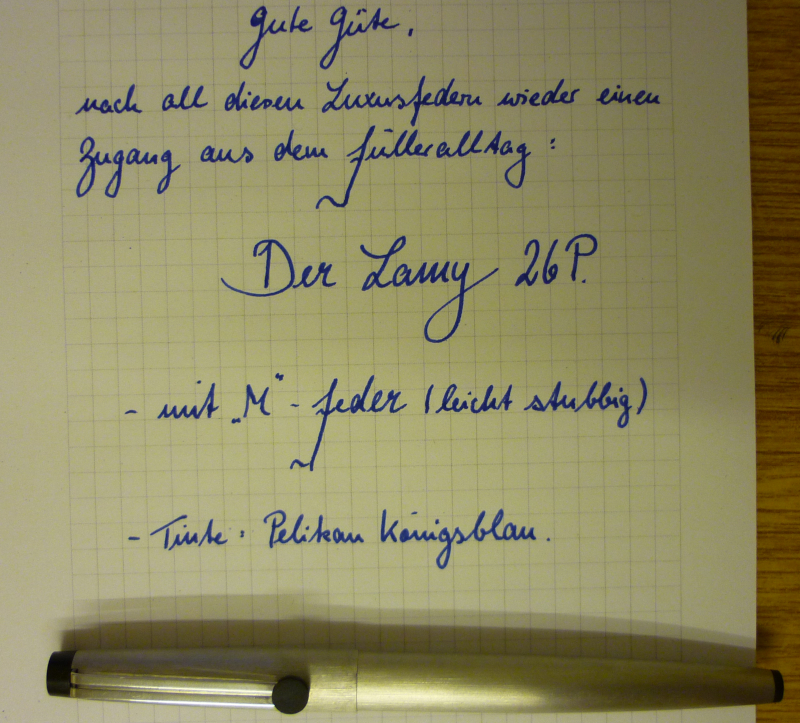 Gute Güte,
nach all diesen Luxusfedern wieder einen
Zugang aus dem Fülleralltag:
Der Lamy 26P.
- mit „M“ - Feder (leicht stubbig)
- Tinte: Pelikan Königsblau.